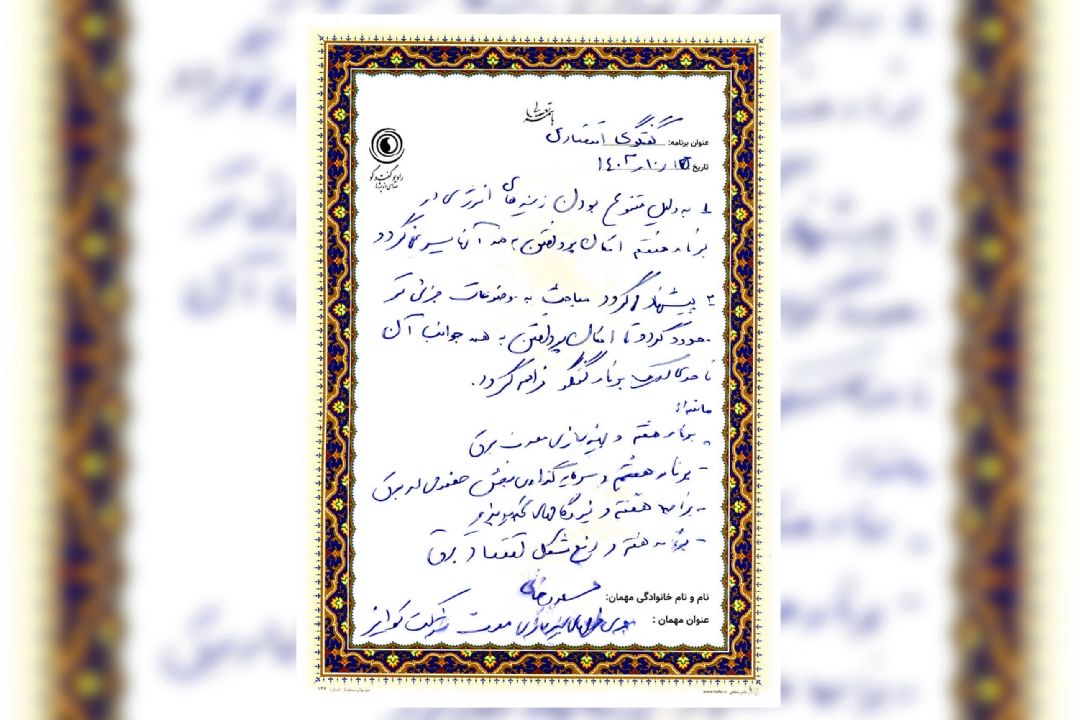 باسمه تعالی
عنوان برنامه: گفتگوی اقتصادی
تاریخ ۱۴۰۲/۱۰/
رادیو گفت و گو
صدای اندیشه‌ها
۱ به دلیل متنوع بودن زمینه‌های انرژی در
برنامه هفتم امکان پرداختن به همه آنها میسر نمی‌گردد
۲ پیشنهاد می‌گردد مباحث به موضوعات جزئی تر
محدود گردد تا امکان پرداختن به همه جوانب آن
تا حدی برنامه گفتگو فراهم گردد.
مانند:
- برنامه هفتم و بهینه سازی مصرف برق
- برنامه هفتم و سرمایه گذاری بخش خصوصی در برق
- برنامه هفتم و نیروگاههای تجدیدپذیر
- برنامه هفتم و رفع مشکل اقتصاد برق
نام و نام خانوادگی مهمان: مسعود
عنوان مهمان : مدیر بهینه سازی مصرف شرکت توانیر